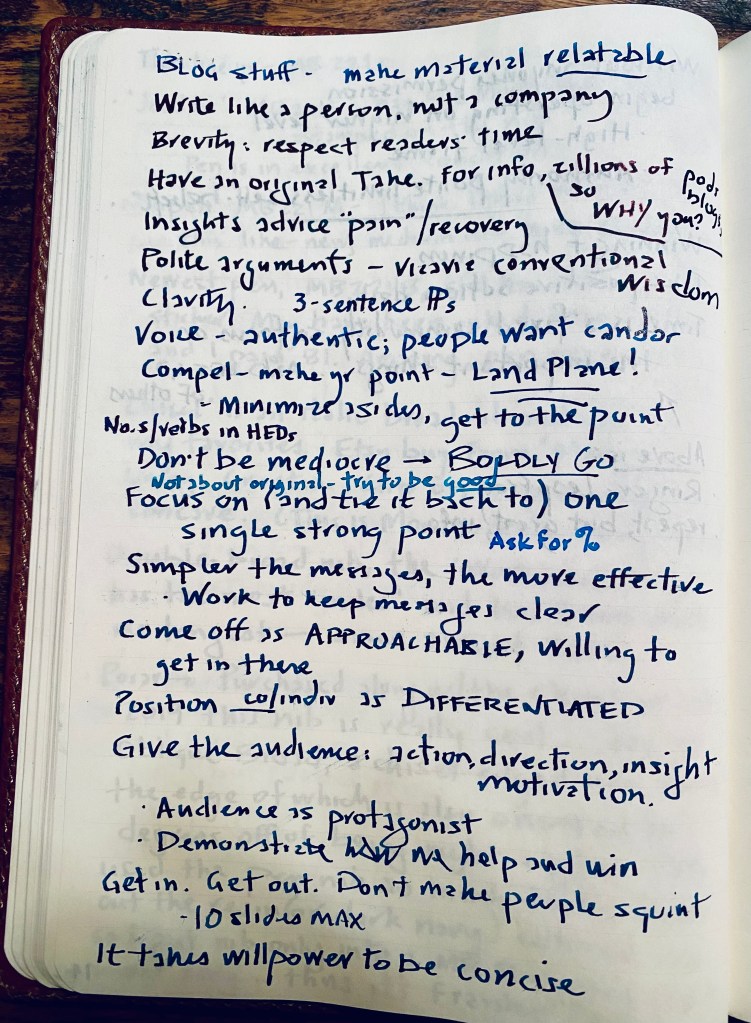 BLOG stuff - make material relatable
Write like a person, not a company
Brevity: respect readers' time
Have an original Take. For info, zillions of pods
blogs
so WHY you?
Insights advice "pain"/recovery
Polite arguments - vicavie conventional
Wisdom
Clarity. 3-sentence PPs
Voice - authentic; people want candor
Compel - make yr point - Land Plane!
- Minimize asides, get to the point
No.s/verbs in HEDs
Don't be mediocre → BOLDLY GO
Not about original - try to be good
Focus on (and tie it back to) one
single strong point Ask for %
Simpler the messages, the more effective
· Work to keep messages clear
Come off as APPROACHABLE, willing to
get in there
Position co/indiv as DIFFERENTIATED
Give the audience: action, direction, insight
motivation.
· Audience as protagonist
· Demonstrate how we help and win
Get in. Get out. Don't make people squint
- 10 slides MAX
It takes willpower to be concise